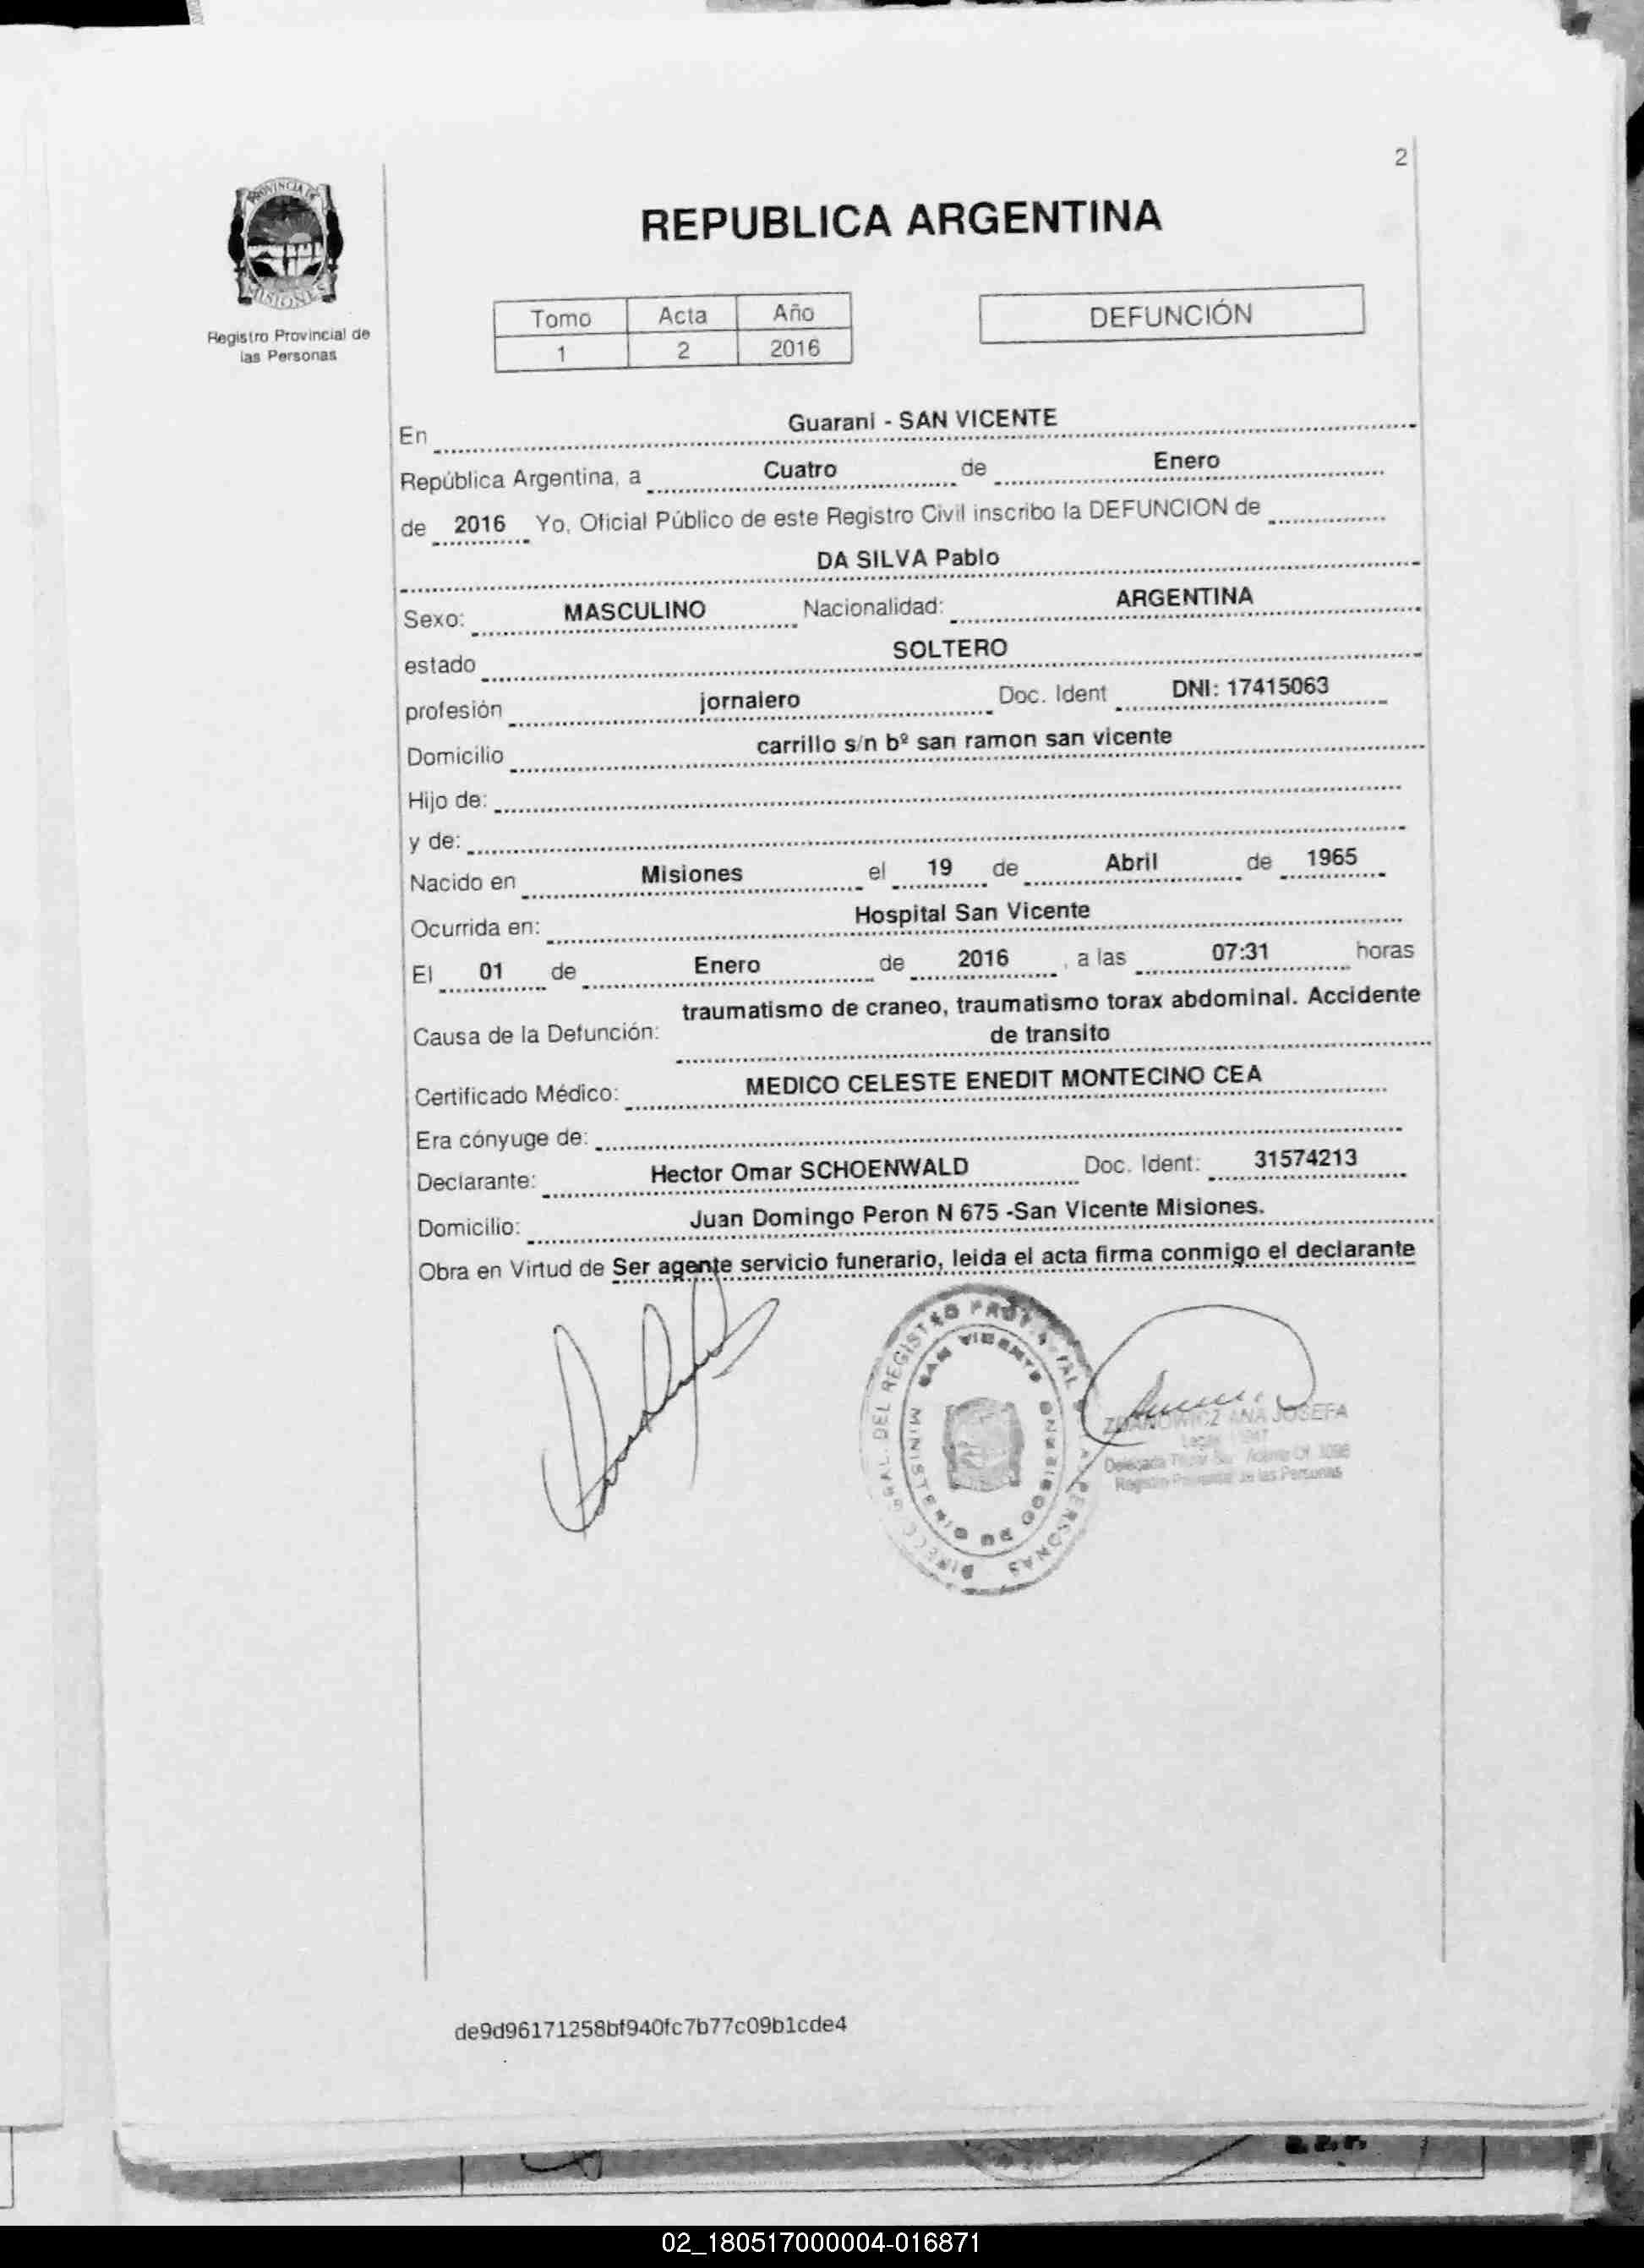 2
PROVINCIA DE
MISIONES
Registro Provincial de
las Personas
REPUBLICA ARGENTINA
Tomo Acta Año
1 2 2016
DEFUNCIÓN
En Guarani - SAN VICENTE
República Argentina, a Cuatro de Enero
de 2016 Yo, Oficial Público de este Registro Civil inscribo la DEFUNCION de
DA SILVA Pablo
Sexo: MASCULINO Nacionalidad: ARGENTINA
estado SOLTERO
profesión jornalero Doc. Ident DNI: 17415063
Domicilio carrillo s/n bº san ramon san vicente
Hijo de:
y de:
Nacido en Misiones el 19 de Abril de 1965
Ocurrida en: Hospital San Vicente
El 01 de Enero de 2016 , a las 07:31 horas
Causa de la Defunción: traumatismo de craneo, traumatismo torax abdominal. Accidente
de transito
Certificado Médico: MEDICO CELESTE ENEDIT MONTECINO CEA
Era cónyuge de:
Declarante: Hector Omar SCHOENWALD Doc. Ident: 31574213
Domicilio: Juan Domingo Peron N 675 -San Vicente Misiones.
Obra en Virtud de Ser agente servicio funerario, leida el acta firma conmigo el declarante
DEL REGISTRO PERSONAS
SAN VICENTE
MINISTERIO DE GOBIERNO
ANA JOSEFA
Registro de las Personas
de9d96171258bf940fc7b77c09b1cde4
02_180517000004-016871